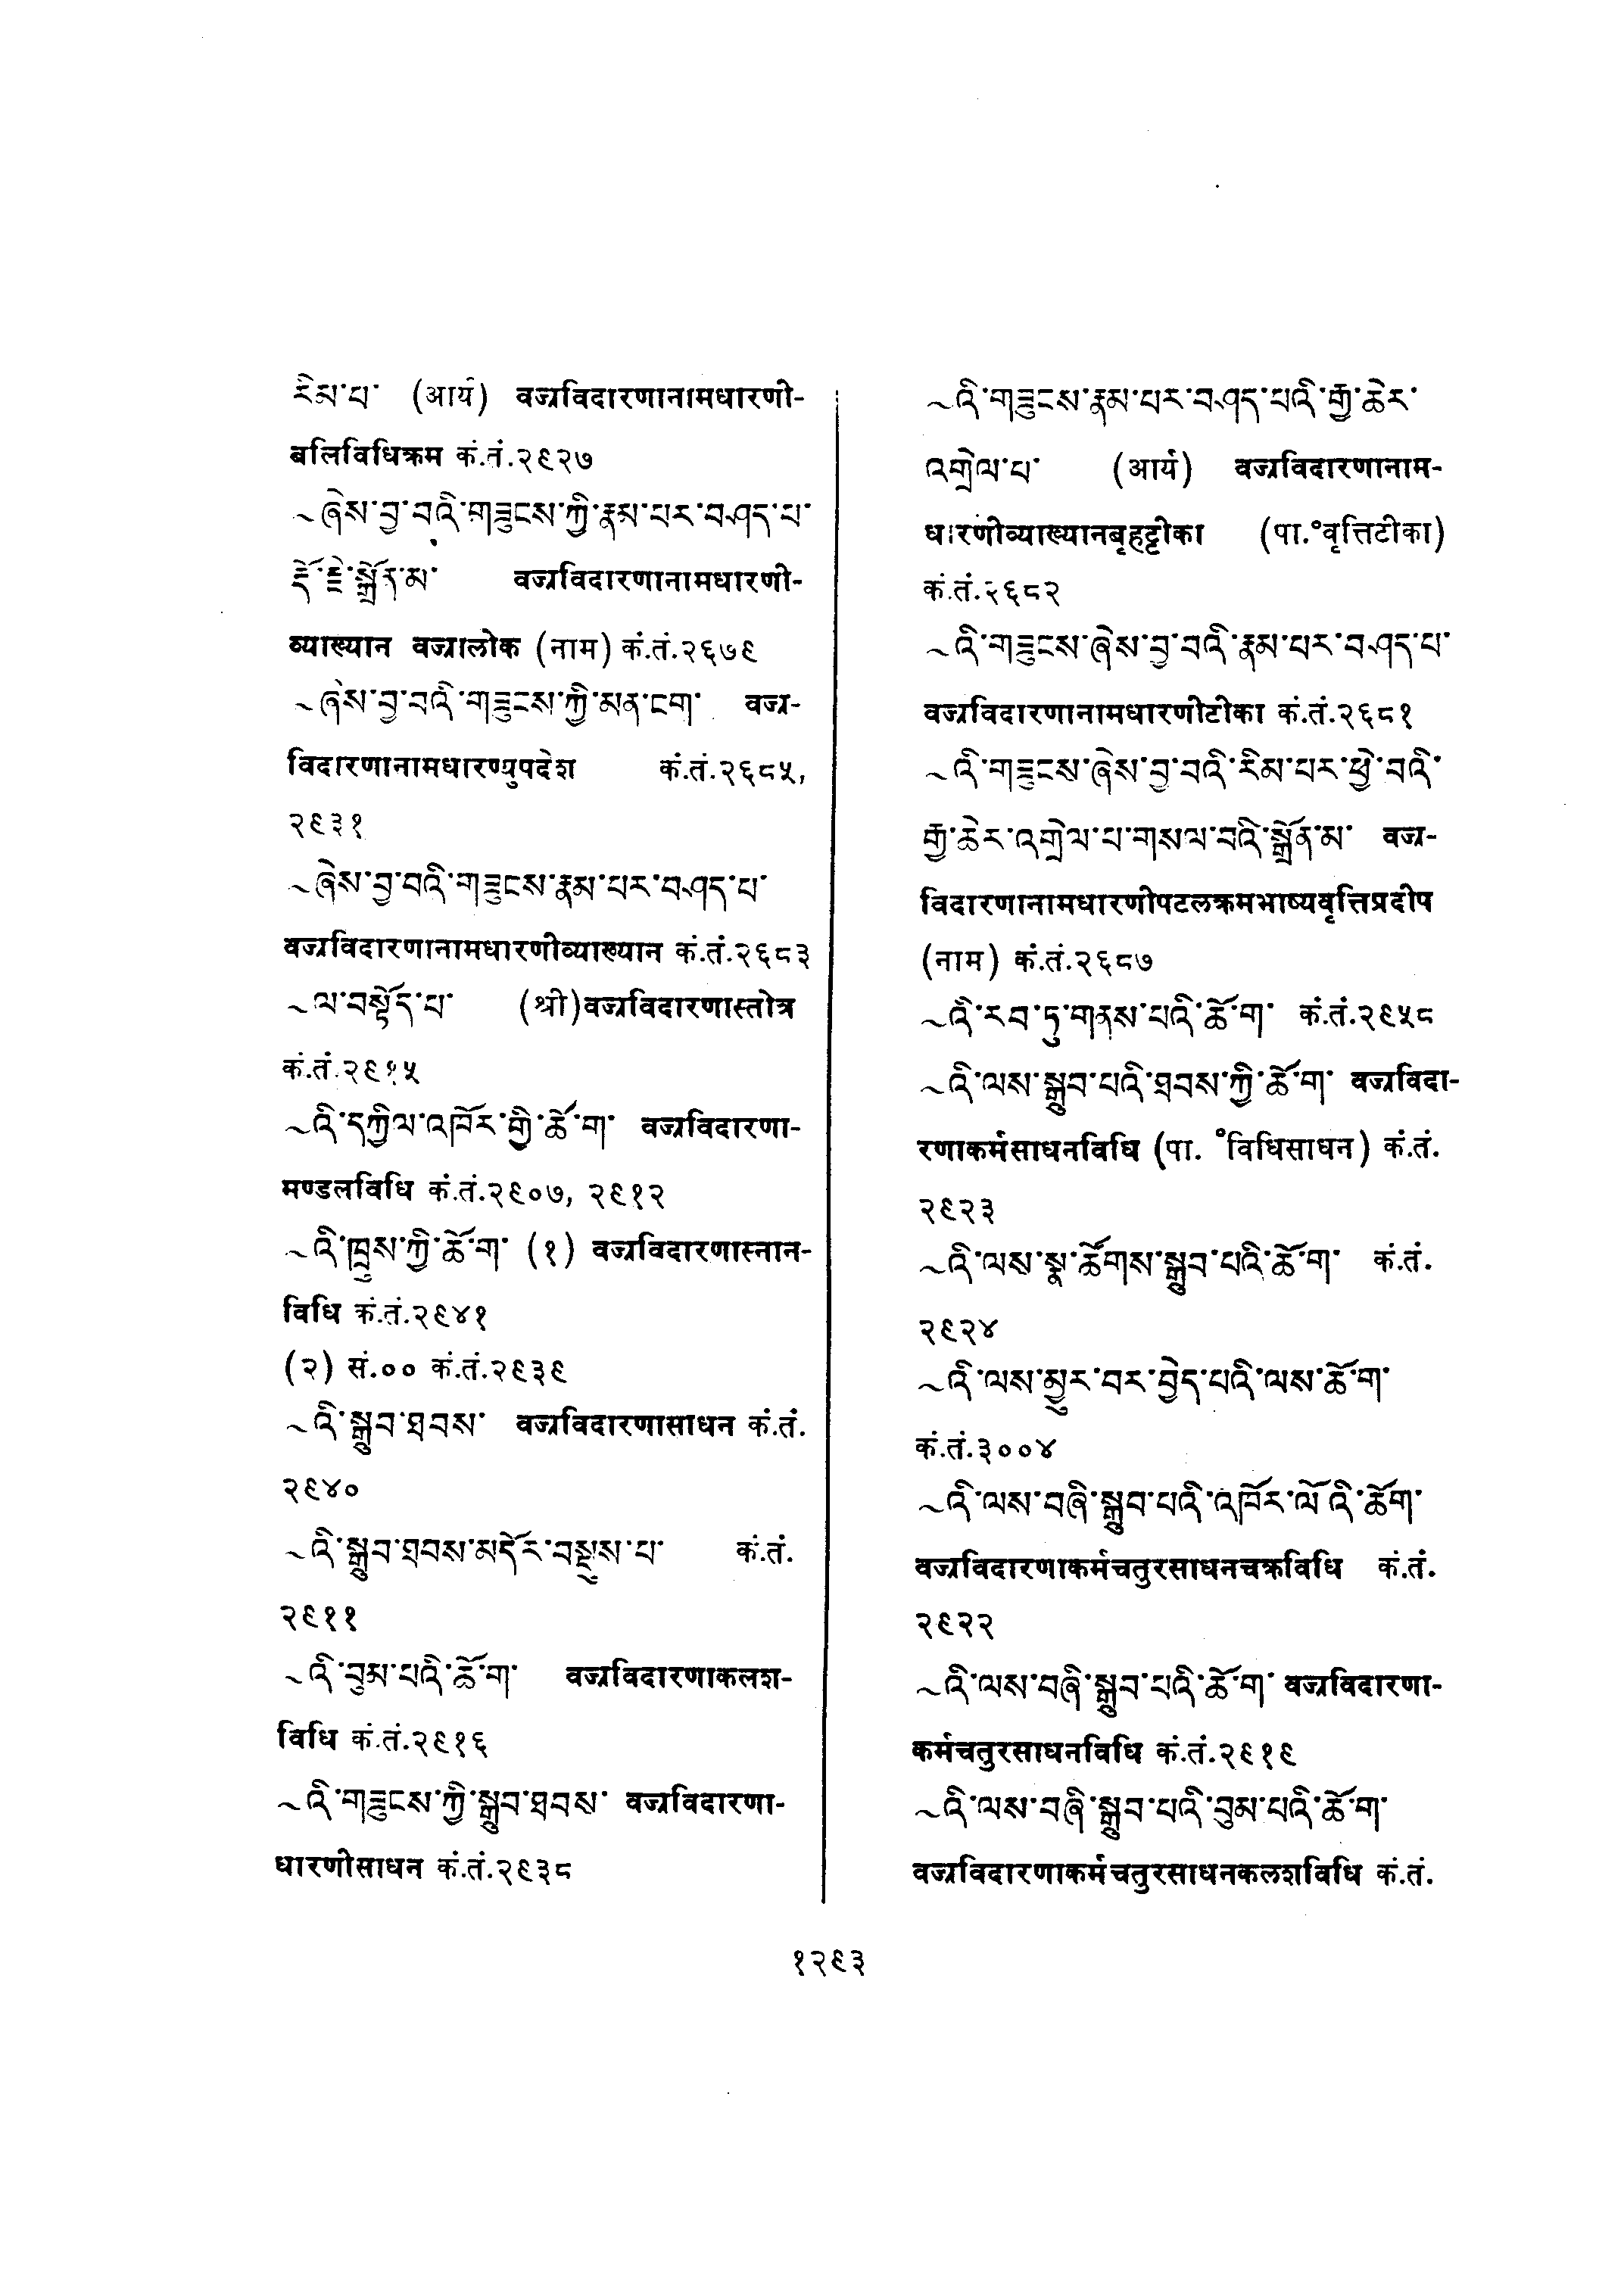 རིམ་པ་ (आर्य) वज्रविदारणानामधारणी-
बलिविधिक्रम कं.तं.२९२७
~ཞེས་བྱ་བའི་གཟུངས་ཀྱི་རྣམ་པར་བཤད་པ་
རྡོ་རྗེ་སྒྲོན་མ་ वज्रविदारणानामधारणी-
व्याख्यान वज्रालोक (नाम) कं.तं.२६७९
~ཞེས་བྱ་བའི་གཟུངས་ཀྱི་མན་ངག་ वज्र-
विदारणानामधारण्युपदेश कं.तं.२६८५,
२९३१
~ཞེས་བྱ་བའི་གཟུངས་རྣམ་པར་བཤད་པ་
वज्रविदारणानामधारणीव्याख्यान कं.तं.२६८३
~ལ་བསྟོད་པ་ (श्री)वज्रविदारणास्तोत्र
कं.तं.२९१५
~འི་དཀྱིལ་འཁོར་གྱི་ཆོ་ག་ वज्रविदारणा-
मण्डलविधि कं.तं.२९०७, २९१२
~འི་ཁྲུས་ཀྱི་ཆོ་ག་ (१) वज्रविदारणास्नान-
विधि कं.तं.२९४१
(२) सं.०० कं.तं.२९३९
~འི་སྒྲུབ་ཐབས་ वज्रविदारणासाधन कं.तं.
२९४०
~འི་སྒྲུབ་ཐབས་མདོར་བསྡུས་པ་ कं.तं.
२९११
~འི་བུམ་པའི་ཆོ་ག་ वज्रविदारणाकलश-
विधि कं.तं.२९१६
~འི་གཟུངས་ཀྱི་སྒྲུབ་ཐབས་ वज्रविदारणा-
धारणीसाधन कं.तं.२९३८
~འི་གཟུངས་རྣམ་པར་བཤད་པའི་རྒྱ་ཆེར་
འགྲེལ་པ་ (आर्य) वज्रविदारणानाम-
धारणीव्याख्यानबृहट्टीका (पा.°वृत्तिटीका)
कं.तं.२६८२
~འི་གཟུངས་ཞེས་བྱ་བའི་རྣམ་པར་བཤད་པ་
वज्रविदारणानामधारणीटीका कं.तं.२६८१
~འི་གཟུངས་ཞེས་བྱ་བའི་རིམ་པར་ཕྱེ་བའི་
རྒྱ་ཆེར་འགྲེལ་པ་གསལ་བའི་སྒྲོན་མ་ वज्र-
विदारणानामधारणीपटलक्रमभाष्यवृत्तिप्रदीप
(नाम) कं.तं.२६८७
~འི་རབ་ཏུ་གནས་པའི་ཆོ་ག་ कं.तं.२९५८
~འི་ལས་སྒྲུབ་པའི་ཐབས་ཀྱི་ཆོ་ག་ वज्रविदा-
रणाकर्मसाधनविधि (पा. °विधिसाधन) कं.तं.
२९२३
~འི་ལས་སྣ་ཚོགས་སྒྲུབ་པའི་ཆོ་ག་ कं.तं.
२९२४
~འི་ལས་མྱུར་བར་བྱེད་པའི་ལས་ཆོ་ག་
कं.तं.३००४
~འི་ལས་བཞི་སྒྲུབ་པའི་འཁོར་ལོ་འི་ཆོག་
वज्रविदारणाकर्मचतुरसाधनचक्रविधि कं.तं.
२९२२
~འི་ལས་བཞི་སྒྲུབ་པའི་ཆོ་ག་ वज्रविदारणा-
कर्मचतुरसाधनविधि कं.तं.२९१९
~འི་ལས་བཞི་སྒྲུབ་པའི་བུམ་པའི་ཆོ་ག་
वज्रविदारणाकर्मचतुरसाधनकलशविधि कं.तं.
१२९३